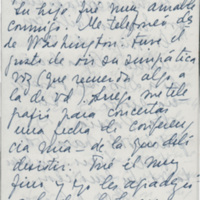 Su hijo fué muy amable
conmigo. Me telefoneó de
de Washington. Tuve el
gusto de oir su simpática
voz (que recuerda algo a
la de vd). Luego me tele-
grafió para concertar
una fecha de conferen
cia mia de la que debí
desistir. Fué él muy
fino y yo les agradezco